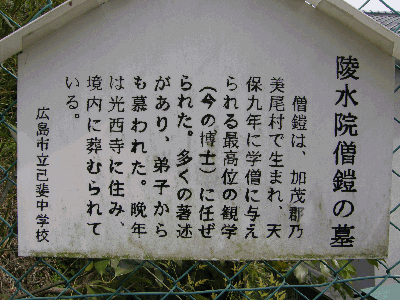 陵水院僧鎧の墓
僧鎧は、加茂郡乃
美尾村で生まれ、天
保九年に学僧に与え
られる最高位の観学
（今の博士）に任ぜ
られた。多くの著述
があり、弟子から
も慕われた。晩年
は光西寺に住み、
境内に葬むられて
いる。
広島市立己斐中学校